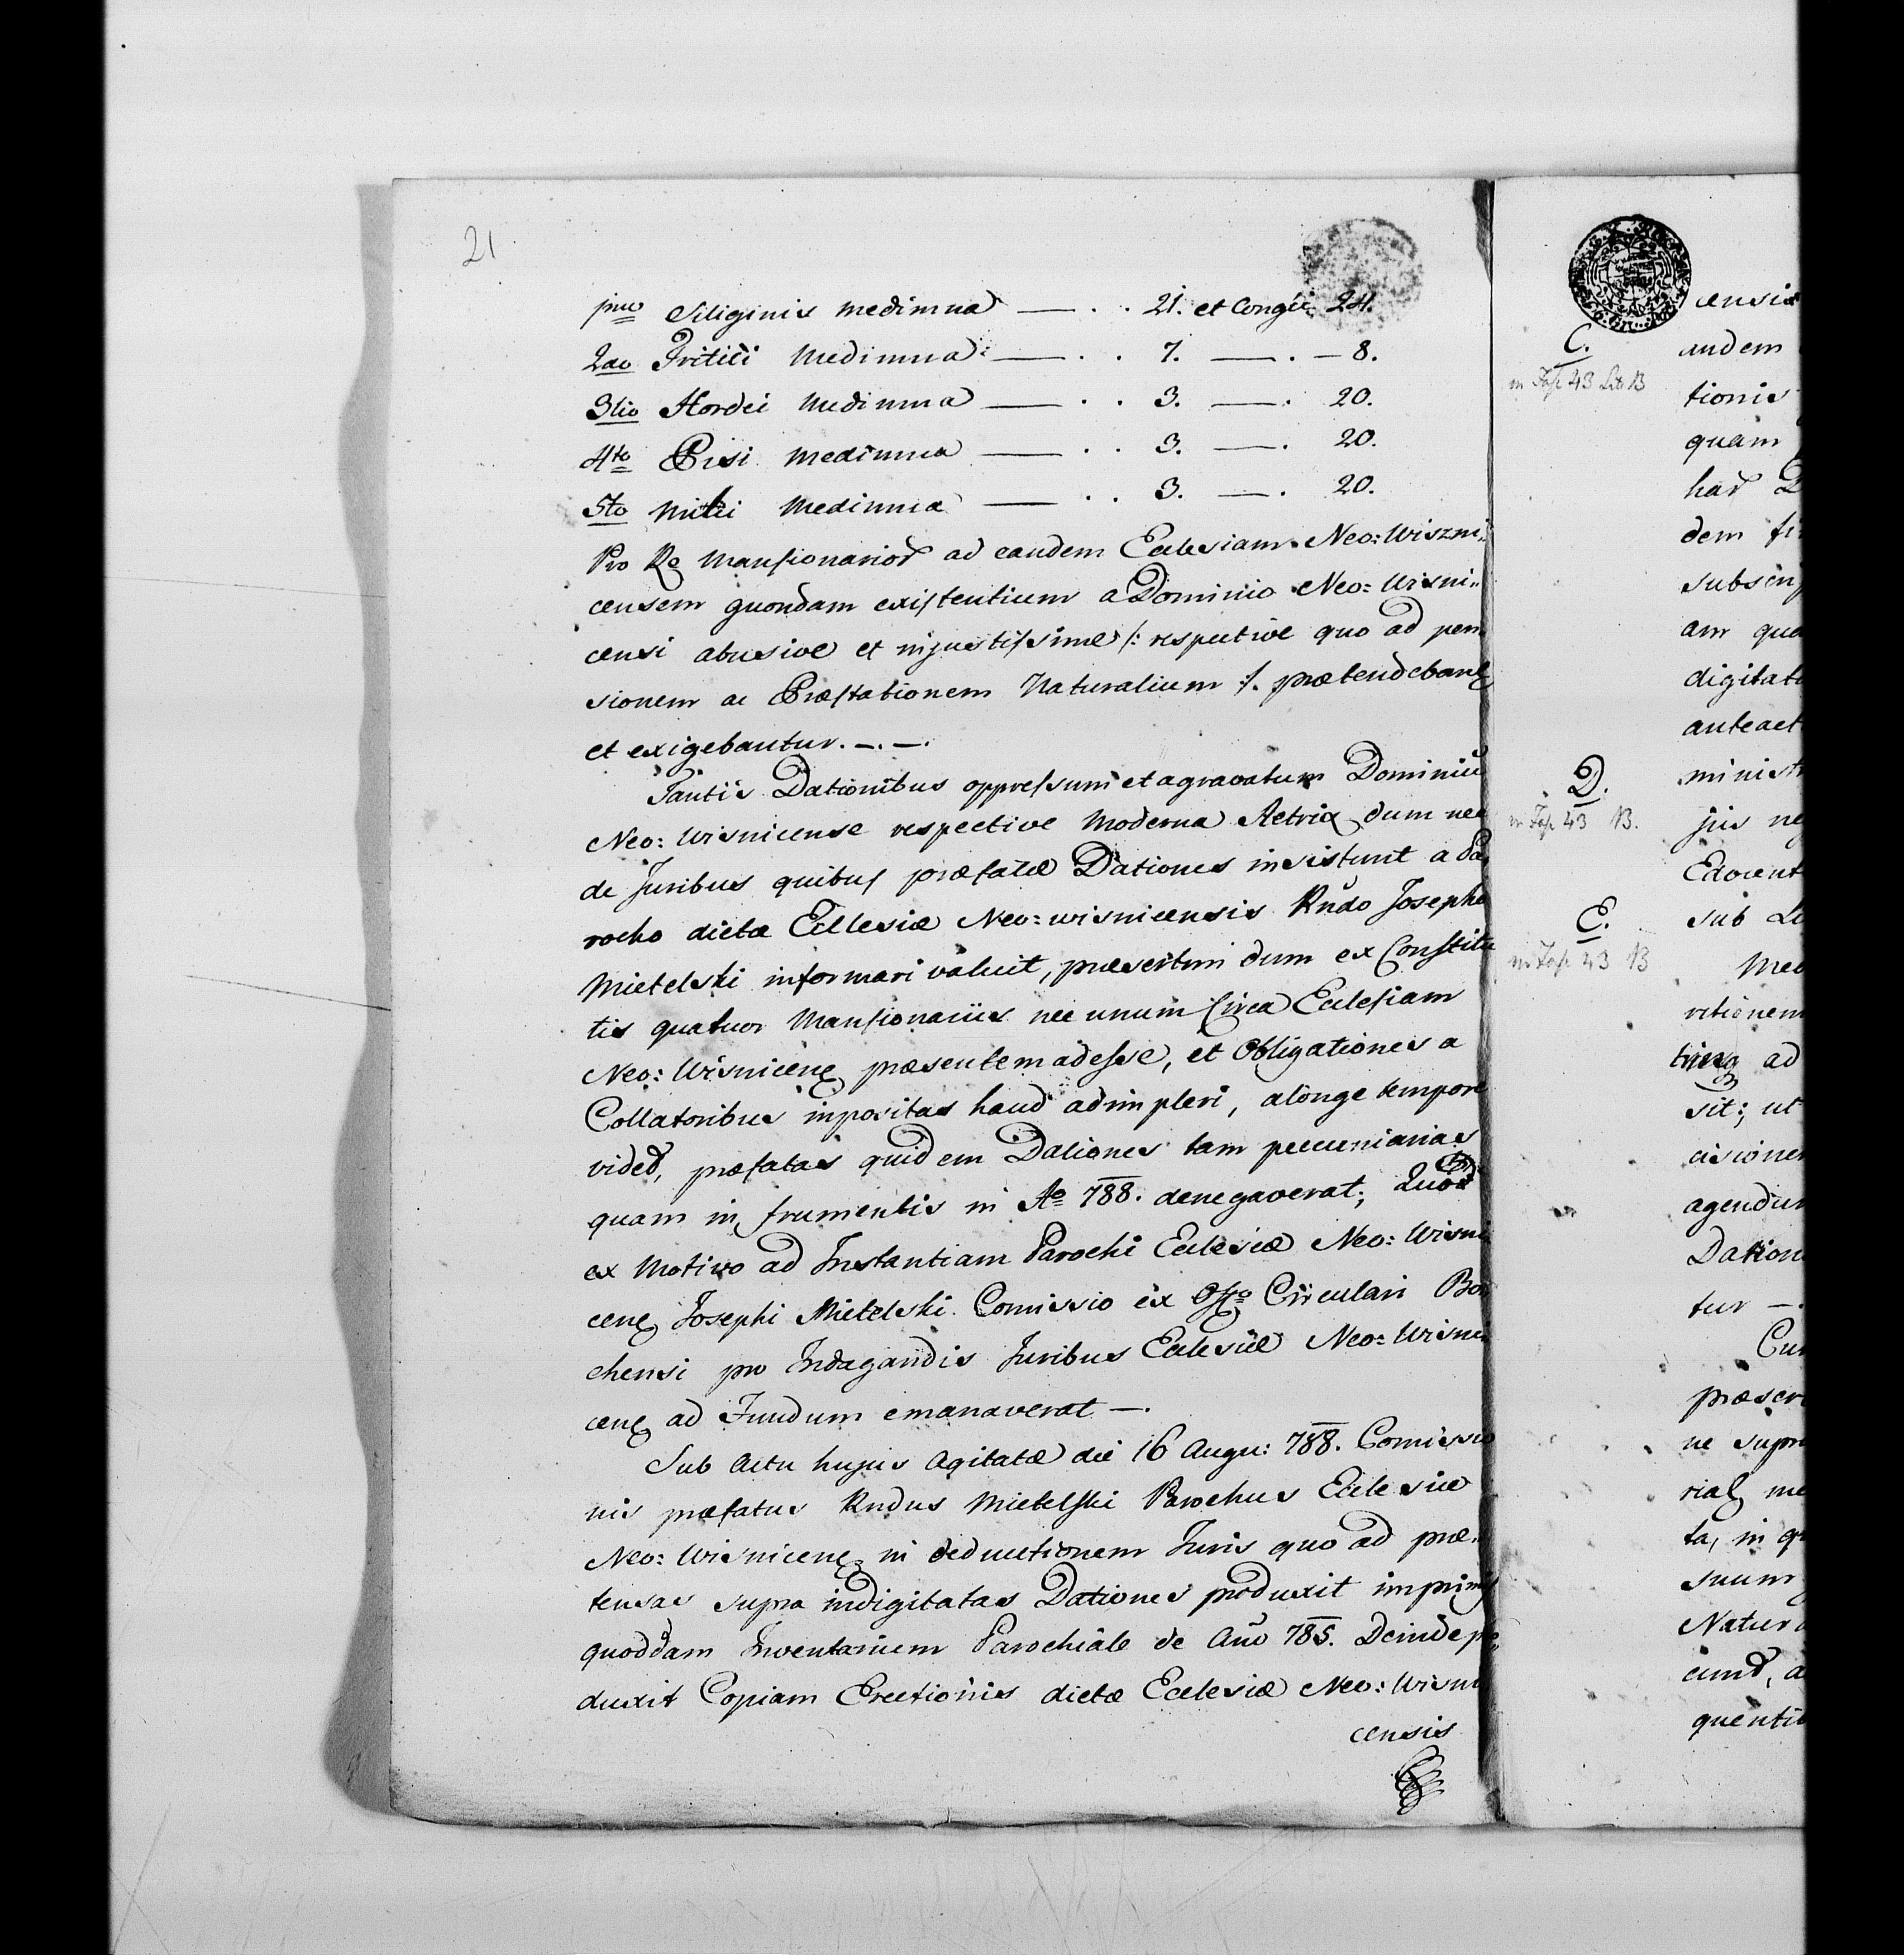 21
1mo Siliginis medimna — . . 21. et Congii 24.
2do Tritici Medimna — . . 7. — . — 8.
3tio Hordei Medimna — . . 3. — . 20.
4to Pisi Medimna — . . 3. — . 20.
5to Milii Medimna — . . 3. — . 20.
Pro Re Mansionarior ad eandem Ecclesiam Neo: Wiszni-
censem quondam existentium a Dominio Neo: Wisni-
censi abusive et injustissime /: respective quo ad pen-
sionem ac Præstationem Naturalium :/ prætendebant
et exigebantur. —. —.
Tantis Dationibus oppressum et agravatum Dominiū
Neo: Wisnicense respective Moderna Actrix, dum nec
de Juribus quibus præfatæ Dationes insistunt a Pa-
rocho dictæ Ecclesiæ Neo: wisnicensis Rndo Josepho
Mietelski informari valuit, præsertim dum ex Constitu
tis quatuor Mansionariis nec unum Circa Ecclesiam
Neo: Wisnicen præsentem adesse, et Obligationes a
Collatoribus impositas haud adimpleri, a longe tempore
vided, præfatas quidem Dationes tam pecuniarias
quam in frumentis in Ao 788. denegaverat; Quo
ex Motivo ad Instantiam Parochi Ecclesiæ Neo: Wisni
cen Josephi Mietelski Comissio ex Offo Circulari Boc
chensi pro Indagandis Juribus Ecclesiæ Neo: Wisni
cen ad Fundum emanaverat —.
Sub Actu hujus Agitatæ die 16 Augu: 788. Comissio
nis præfatus Rndus Mietelski Parochus Ecclesiæ
Neo: Wisnicen in deductionem Juris quo ad præ-
tensas supra indigitatas Dationes produxit imprimis
quoddam Inventarium Parochiale de Anō 785. Deinde pro
duxit Copiam Erectionis dictæ Ecclesiæ Neo: Wisni
censis
censis
C. andem
in Fas 43 Lit B tionis
quam
har
dem
subscrip
am qua
digitat
anteact
D. minist
in Fas 43 B. jus ne
Edocent
E. sub
in Fas 43 B
retionem
ad
sit; ut
cisionem
agendum
Dation
tur —.
Cum
præser
ne supra
me
ta, in
suum
Natura
quenti